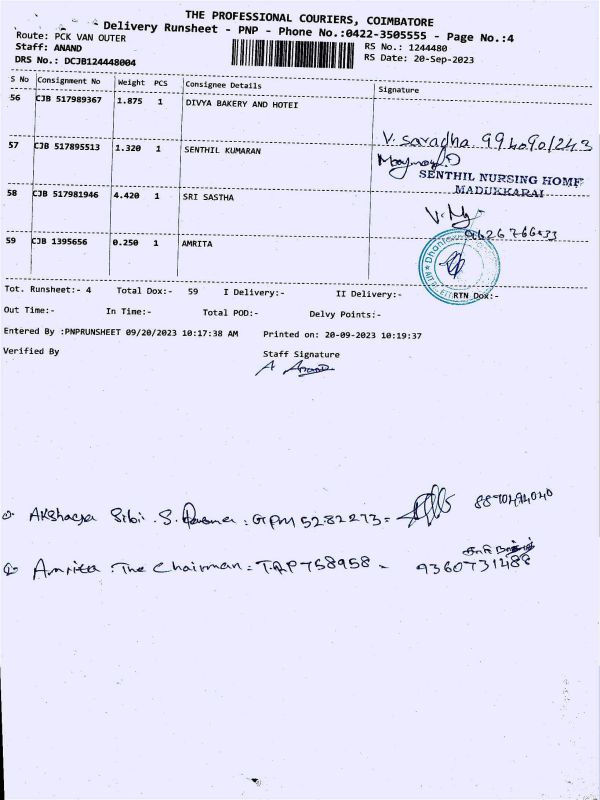 THE PROFESSIONAL COURIERS, COIMBATORE
Delivery Runsheet - PNP - Phone No.:0422-3505555 - Page No.:4
Route: PCK VAN OUTER RS No.: 1244480
Staff: ANAND RS Date: 20-Sep-2023
DRS No.: DCJB124448004
S No Consignment No Weight PCS Consignee Details Signature
56 CJB 517989367 1.875 1 DIVYA BAKERY AND HOTEl
V. Saradha 9940901243
57 CJB 517895513 1.320 1 SENTHIL KUMARAN
SENTHIL NURSING HOME
MADUKKARAI
58 CJB 517981946 4.420 1 SRI SASTHA
59 CJB 1395656 0.250 1 AMRITA
Tot. Runsheet:- 4 Total Dox:- 59 I Delivery:- II Delivery:- RTN Dox:-
Out Time:- In Time:- Total POD:- Delvy Points:-
Entered By :PNPRUNSHEET 09/20/2023 10:17:38 AM Printed on: 20-09-2023 10:19:37
Verified By Staff Signature
A Anand
Akshaya Sibi S. : GPM 5282273 = 8870494040
Amrita The Chairman : TRP 758958 - 9360731488